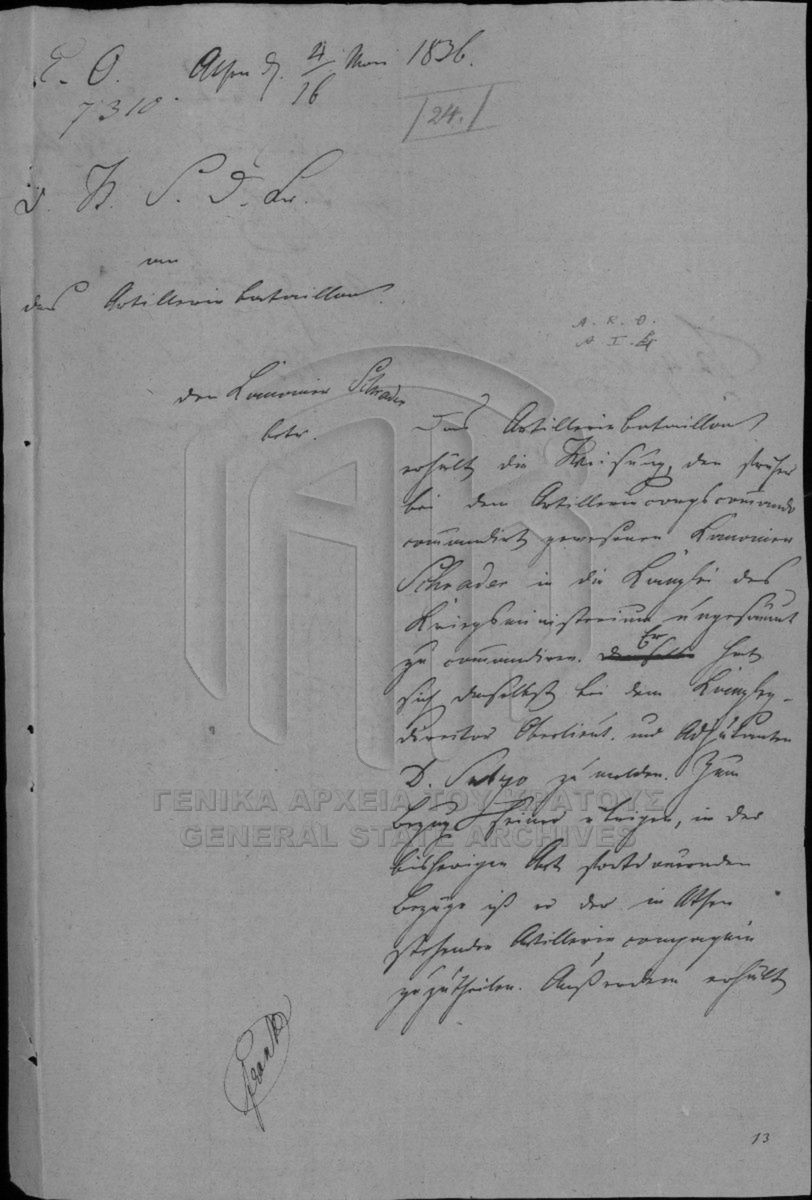 E. O. Athen d. 4/16 Mai 1836.
7310.
/24./
D. K. S. D. Kr.
an
das Artilleriebataillon.
A. R. O.
A I. 4
den Kanonier Schrader
betr.
Das Artilleriebataillon
erhält die Weisung, den früher
bei dem Artilleriecorpscommando
commandirt gewesenen Kanonier
Schrader in die Kanzlei des
Kriegsministerium ungesäumt
zu commandiren. Er hat
sich daselbst bei dem Kanzley-
director Oberlieut. und Adjutanten
D. zu melden. Zum
Bezug seiner übrigen, in der
bisherigen Art fortdauernden
Bezüge ist er der in Athen
stehenden Artilleriecompagnie
zuzutheilen. Außerdem erhält
13
ΓΕΝΙΚΑ ΑΡΧΕΙΑ ΤΟΥ ΚΡΑΤΟΥΣ
GENERAL STATE ARCHIVES